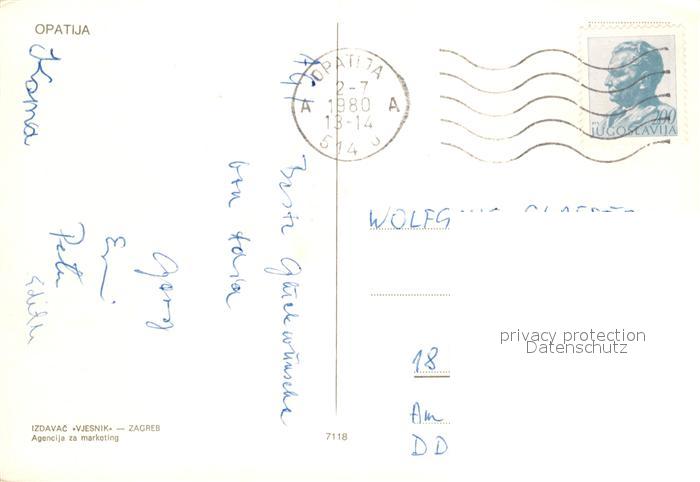 OPATIJA
OPATIJA
2-7
1980
A A
13-14
514
200
JUGOSLAVIJA
WOLFG
privacy protection
Datenschutz
18
Am
DD
Beste Glückwünsche
Georg
Peter
Edith
IZDAVAČ »VJESNIK« — ZAGREB
Agencija za marketing
7118